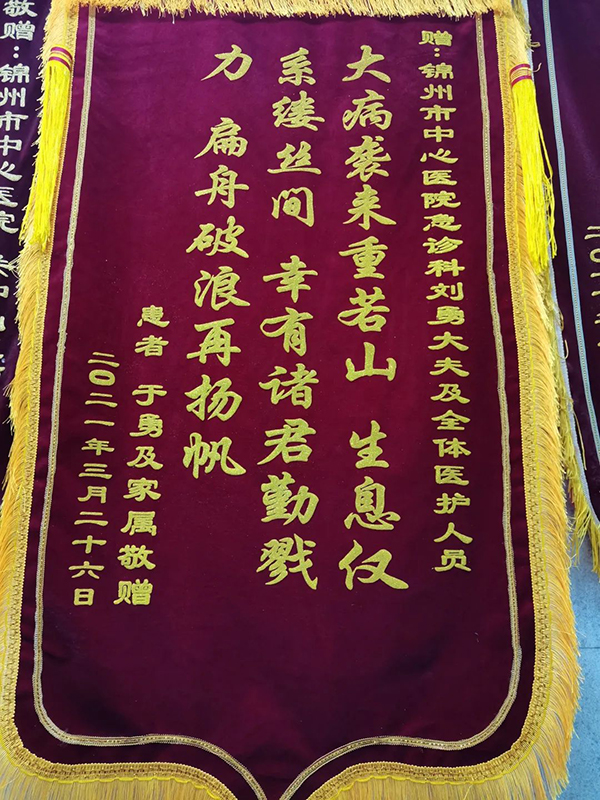 赠：锦州市中心医院急诊科刘勇大夫及全体医护人员
大病袭来重若山 生息仅
系缕丝间 幸有诸君勤戮
力 扁舟破浪再扬帆
患者 于勇及家属敬赠
二〇二一年三月二十六日
敬赠：锦州市中心医院
二〇二